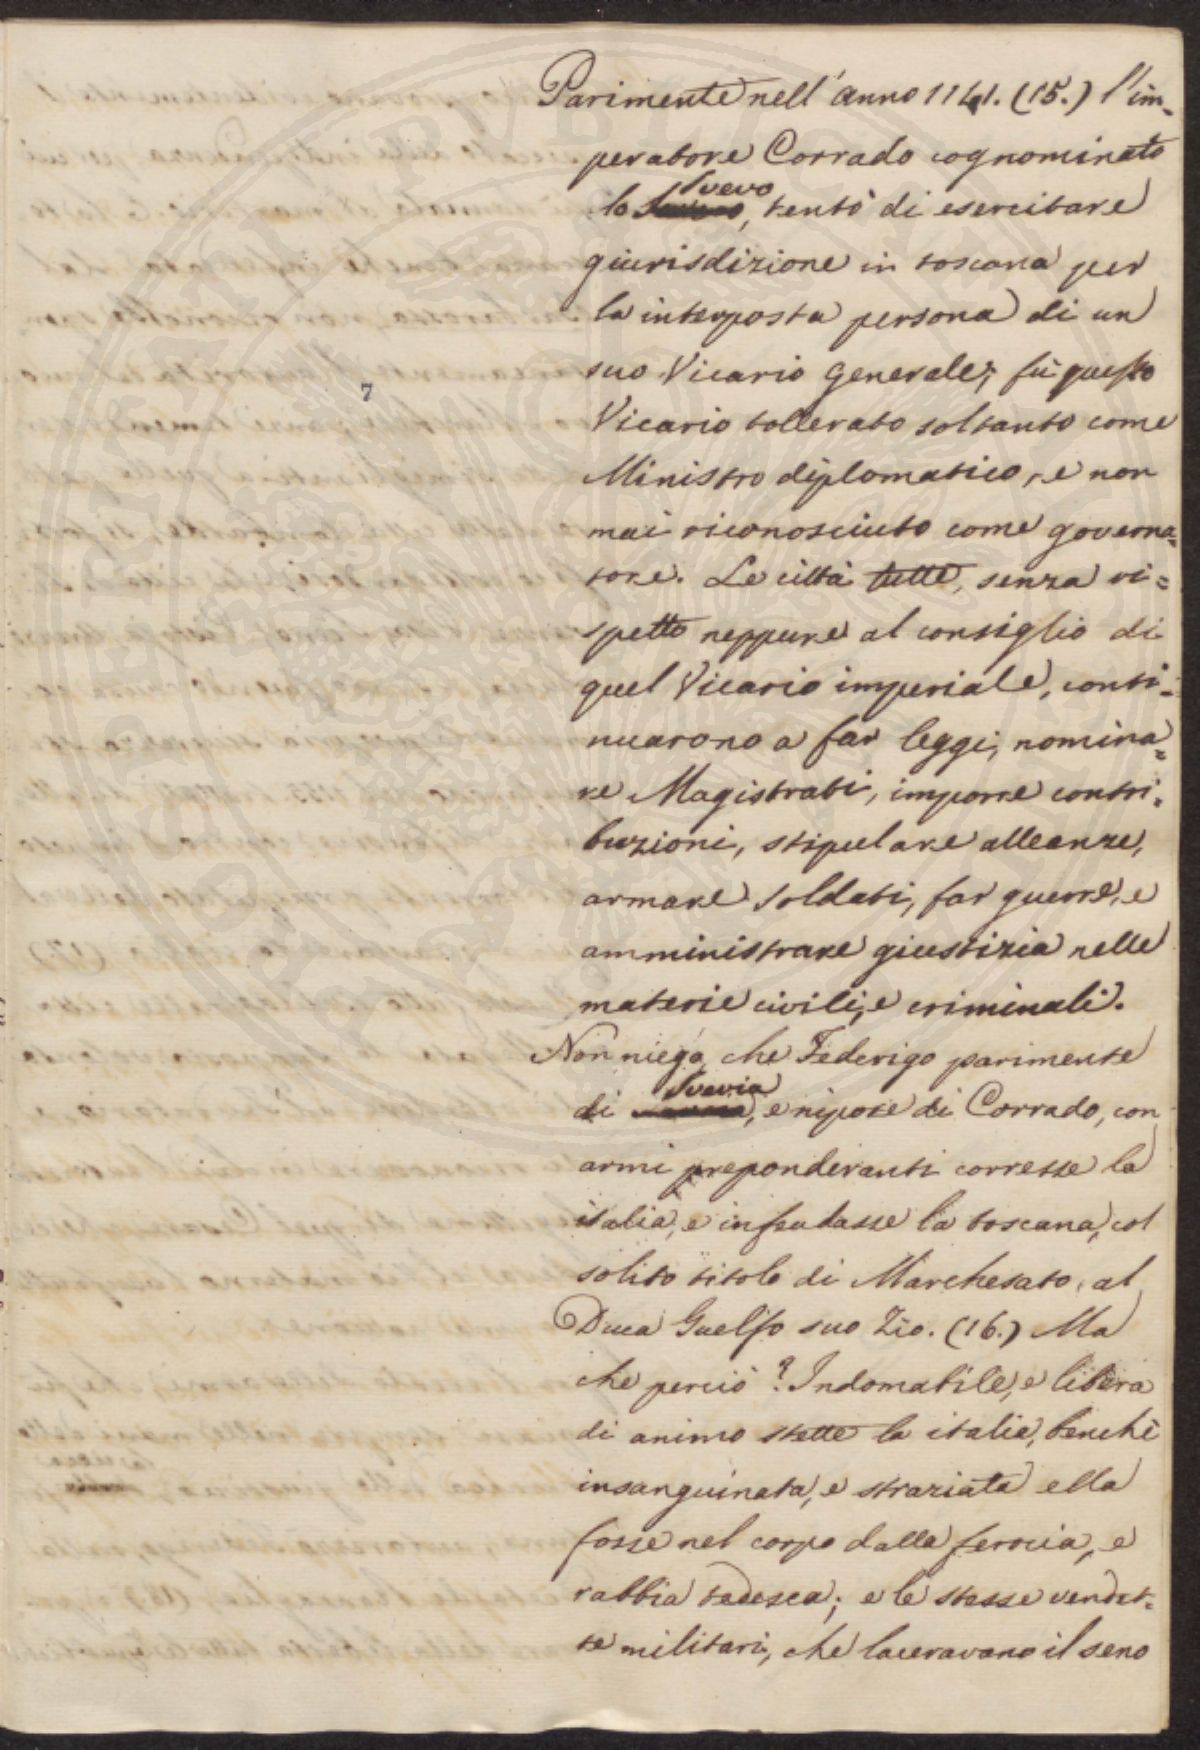 Parimente nell'anno 1141. (15.) l'im-
peratore Corrado cognominato
lo Svevo, tentò di esercitare
giurisdizione in toscana per
la interposta persona di un
suo Vicario generale; fù questo
7
Vicario tollerato soltanto come
Ministro diplomatico, e non
mai riconosciuto come governa=
tore. Le città tutte, senza ri=
spetto neppure al consiglio di
quel Vicario imperiale, conti=
nuarono a far leggi, nomina=
re Magistrati, imporre contri=
buzioni, stipulare alleanze,
armare soldati, far guerre, e
amministrare giustizia nelle
materie civili, e criminali.
Non niego, che Federigo parimente
di Svevia, e nipote di Corrado, con
armi preponderanti corresse la
italia, e infeudasse la toscana, col
solito titolo di Marchesato, al
Duca Guelfo suo Zio. (16.) Ma
che perciò? Indomabile, e libera
di animo stette la italia, benchè
insanguinata, e straziata ella
fosse nel corpo dalla ferocia, e
rabbia tedesca; e le stesse vendet=
te militari, che laceravano il seno